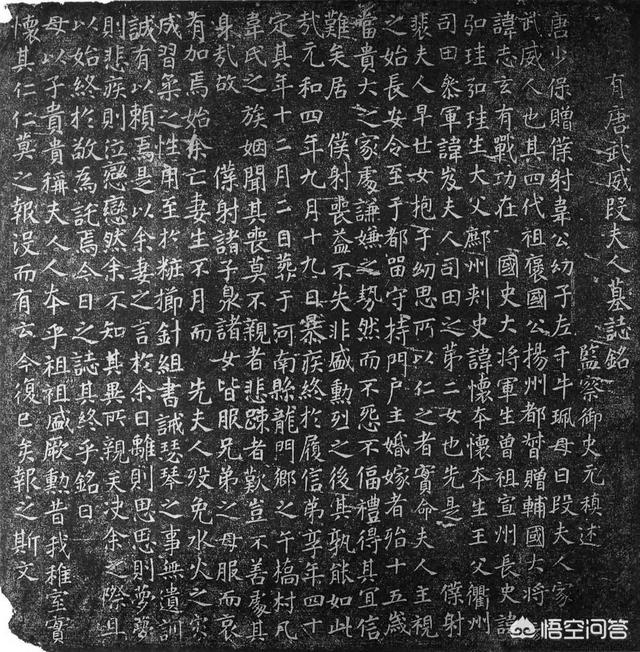 有唐武威段夫人墓誌銘
監察御史元稹述
唐少保贈僕射韋公幼子左千牛珮母曰段夫人家
武威人也其四代祖褒國公揚州都督贈輔國大將
諱志玄有戰功在 國史大將軍生曾祖宣州長史諱
弘珪弘珪生大父鄜州刾史諱懷夲懷夲生王父衢州
司田叅軍諱岌夫人司田之第二女也先是 僕射
裴夫人早世女抱子幼思所以仁之者實命夫人主視
之始長安令至于都留守持門戶主婚嫁者殆十五歲
當貴大之家處謙嫌之勢然而不怨不偪禮得其宜信
難矣居 僕射喪益不失非盛勳烈之後其孰能如此
哉元和四年九月十九日暴疾終於履信第享年四十
定其年十二月二日葬于河南縣龍門鄉之午橋村凡
韋氏之族姻聞其喪莫不親者悲疎者歎豈不善處其
身哉故 僕射諸子泉諸女皆服兄弟之母服而哀
有加焉始余亡妻生不月而 先夫人殁免水火之灾
成習柔之性用至於粧櫛針組書誡瑟琴之事無遺訓
誠有以賴焉是以余妻之言於余曰離則思思則夢夢
則悲疾則泣戀戀然余不知其異所親矣决余之際且
以始終於敬為託焉今日之誌其終乎銘曰
母以子貴貴稱夫人人夲乎祖祖盛厥勳昔我稚室實
懷其仁仁莫之報沒而有云今復已矣報之斯文
悟空问答